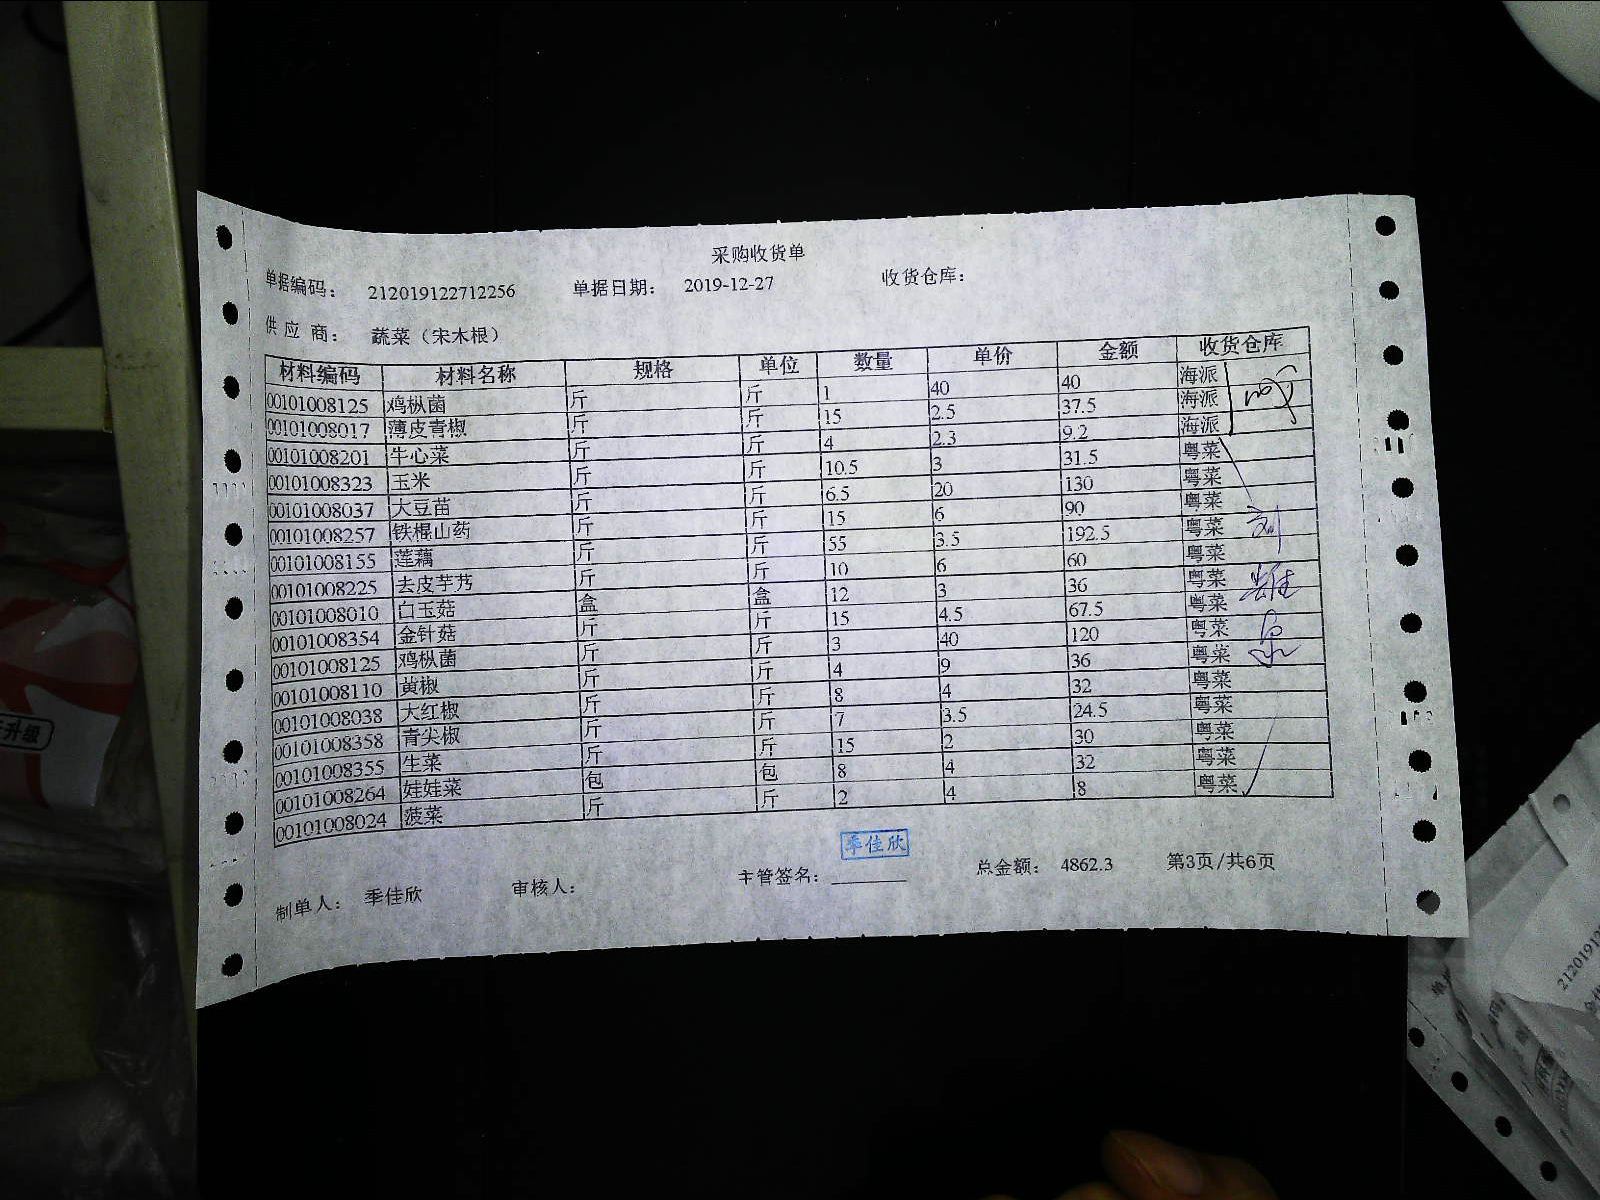 采购收货单
单据编码： 212019122712256 单据日期： 2019-12-27 收货仓库：
供 应 商： 蔬菜（宋木根）
材料编码 材料名称 规格 单位 数量 单价 金额 收货仓库
00101008125 鸡枞菌 斤 斤 1 40 40 海派
00101008017 薄皮青椒 斤 斤 15 2.5 37.5 海派
00101008201 牛心菜 斤 斤 4 2.3 9.2 海派
00101008323 玉米 斤 斤 10.5 3 31.5 粤菜
00101008037 大豆苗 斤 斤 6.5 20 130 粤菜
00101008257 铁棍山药 斤 斤 15 6 90 粤菜
00101008155 莲藕 斤 斤 55 3.5 192.5 粤菜
00101008225 去皮芋艿 斤 斤 10 6 60 粤菜
00101008010 白玉菇 盒 盒 12 3 36 粤菜
00101008354 金针菇 斤 斤 15 4.5 67.5 粤菜
00101008125 鸡枞菌 斤 斤 3 40 120 粤菜
00101008110 黄椒 斤 斤 4 9 36 粤菜
00101008038 大红椒 斤 斤 8 4 32 粤菜
00101008358 青尖椒 斤 斤 7 3.5 24.5 粤菜
00101008355 生菜 斤 斤 15 2 30 粤菜
00101008264 娃娃菜 包 包 8 4 32 粤菜
00101008024 菠菜 斤 斤 2 4 8 粤菜
季佳欣
制单人： 季佳欣 审核人： 主管签名： 总金额： 4862.3 第3页/共6页
升级